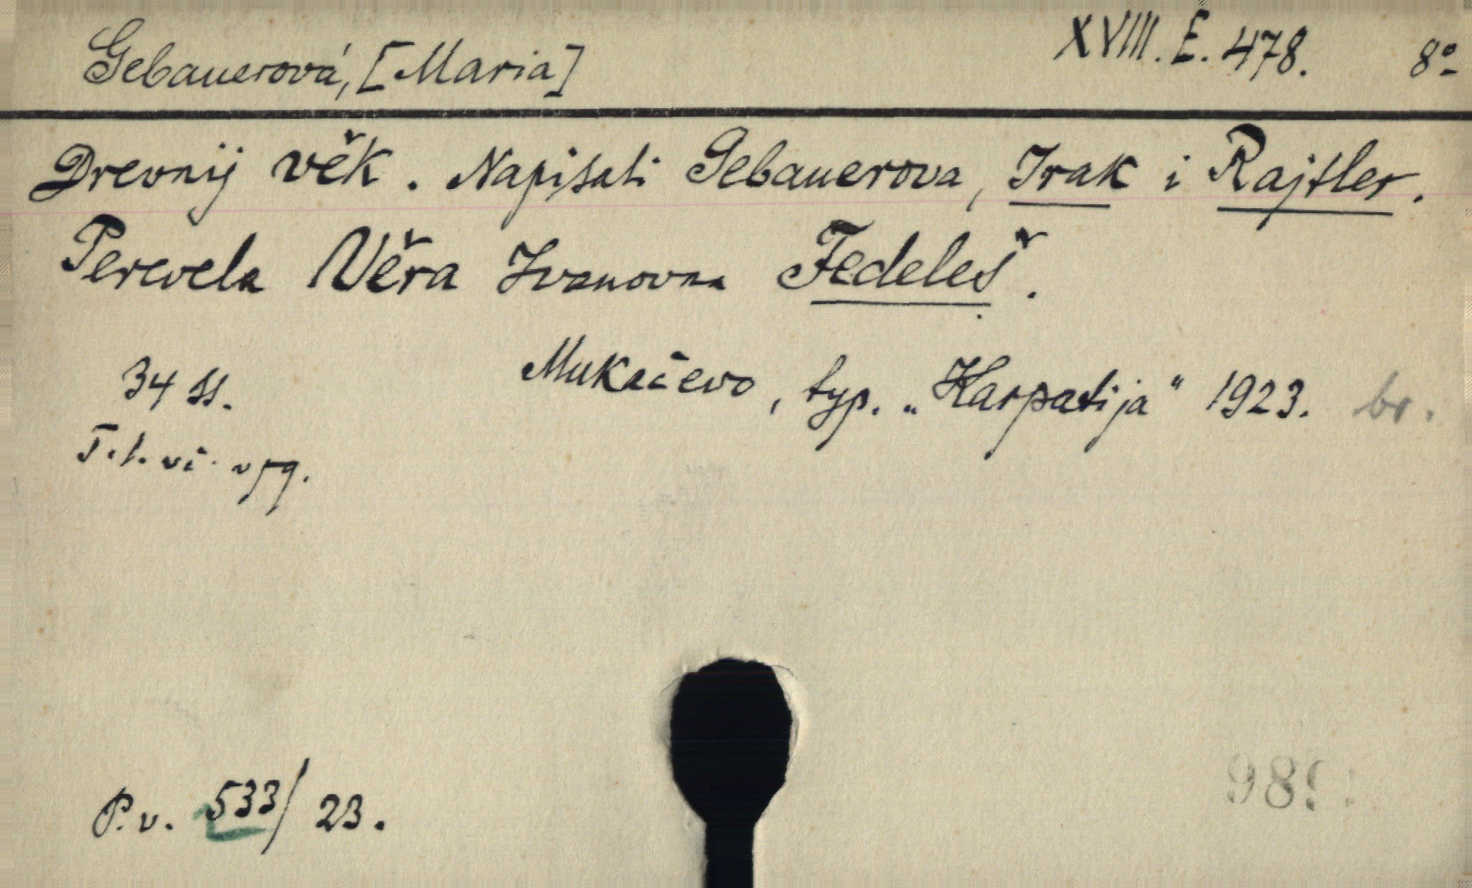 Gebauerová, [Maria]
XVIII. E. 478. 8º
Drevnij věk. Napisali Gebauerova, Irak i Rajtler.
Perevela Věra Ivanovna Fedeleš.
34 ss.
Mukačevo, typ. „Karpatija" 1923. br.
T. l. vč.
P. v. 533/23.